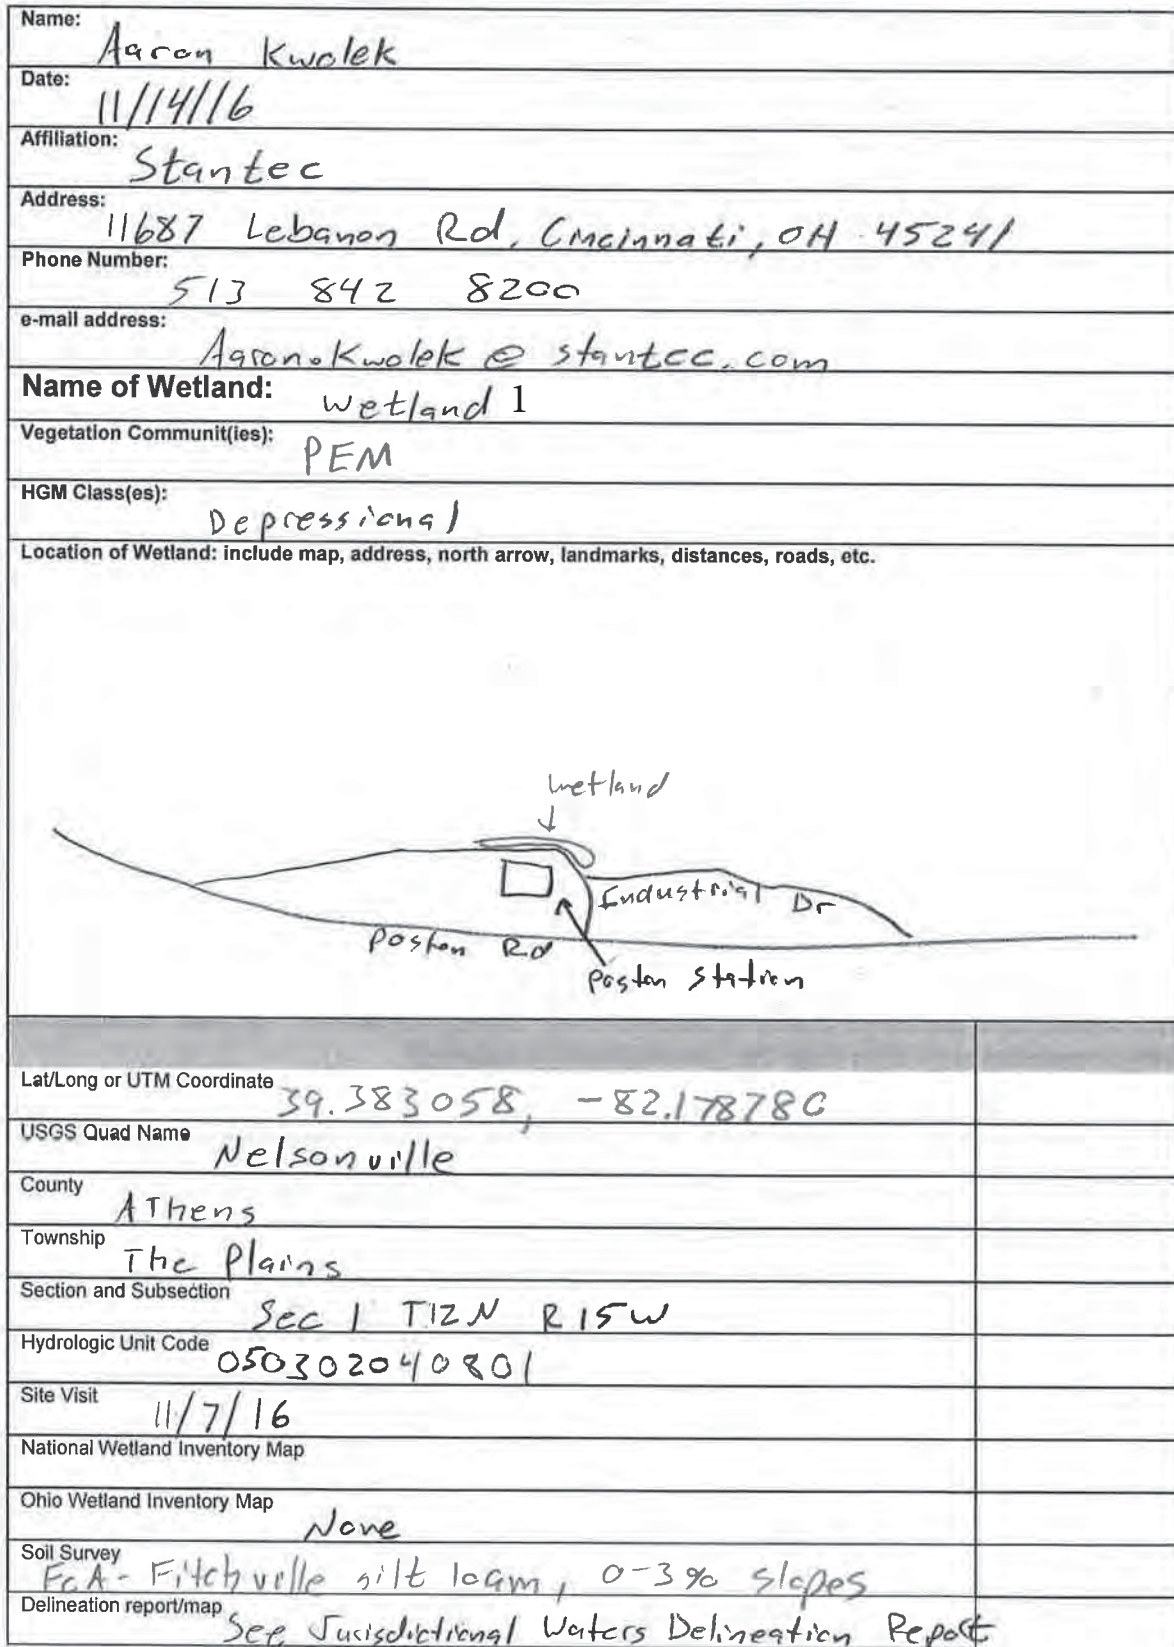 Name:
Aaron Kwolek
Date:
11/14/16
Affiliation:
Stantec
Address:
11687 Lebanon Rd, Cincinnati, OH 45241
Phone Number:
513 842 8200
e-mail address:
Aaron.Kwolek @ stantec.com
Name of Wetland: Wetland 1
Vegetation Communit(ies):
PEM
HGM Class(es):
Depressional
Location of Wetland: include map, address, north arrow, landmarks, distances, roads, etc.
Wetland
Industrial Dr
Poston Rd
Poston Station
Lat/Long or UTM Coordinate 39.383058, -82.178780
USGS Quad Name
Nelsonville
County
Athens
Township
The Plains
Section and Subsection
Sec 1 T12N R15W
Hydrologic Unit Code 050302040801
Site Visit
11/7/16
National Wetland Inventory Map
Ohio Wetland Inventory Map
None
Soil Survey
FcA - Fitchville silt loam, 0-3% slopes
Delineation report/map
See Jurisdictional Waters Delineation Report